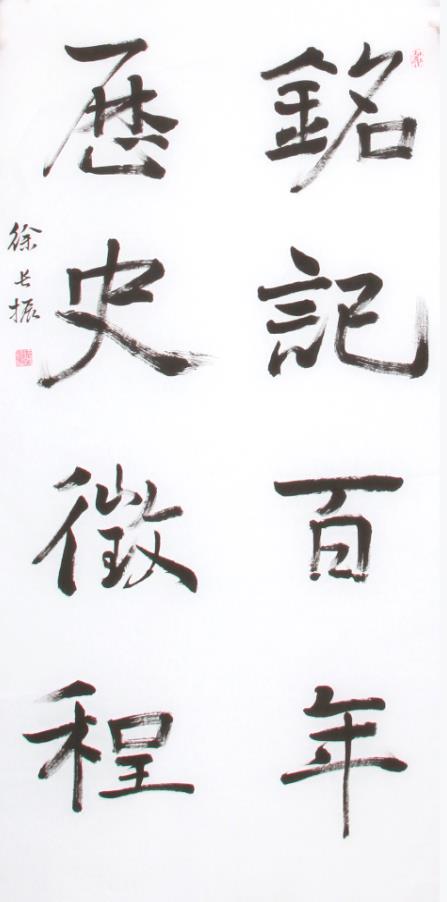 銘記百年
歷史徵程
徐长振